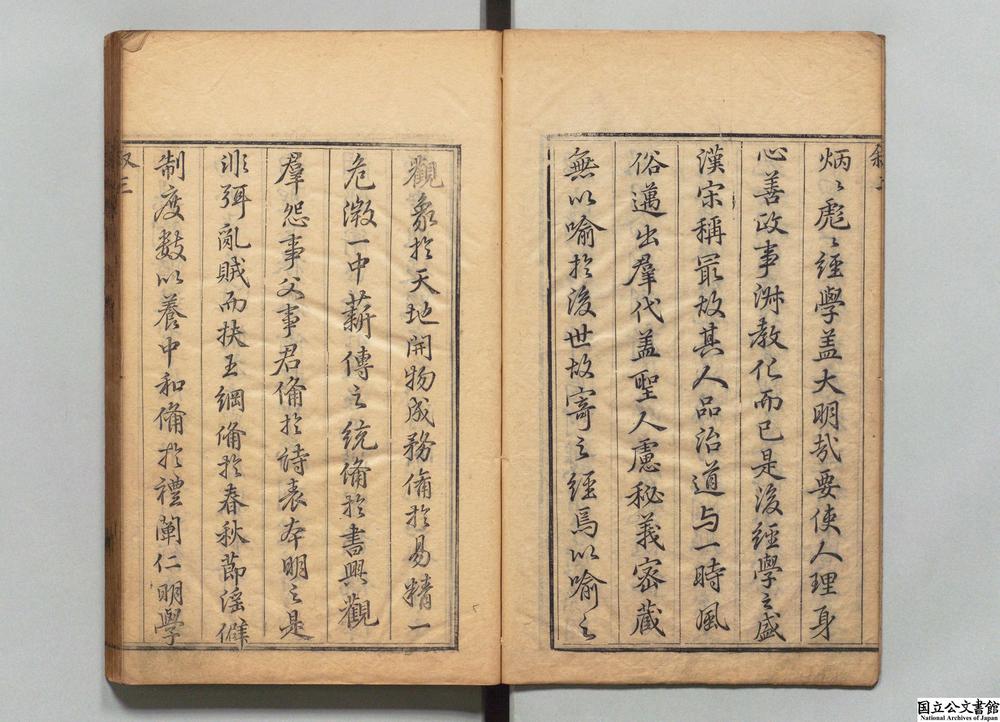 炳〻彪〻經學盖大明哉要使人理身
心善政事淑教化而已是後經學之盛
漢宋稱最故其人品治道与一時風
俗邁出羣代盖聖人慮秘義密藏
無以喻扵後世故寄之經焉以喻之
觀象扵天地開物成務備扵易精一
危微一中薪傳之統備扵書興觀
羣怨事父事君備扵詩表本明之是
非弭亂賊而扶王綱備扵春秋節淫僻
制度數以養中和備扵禮闡仁明學
叙三
国立公文書館
National Archives of Japan